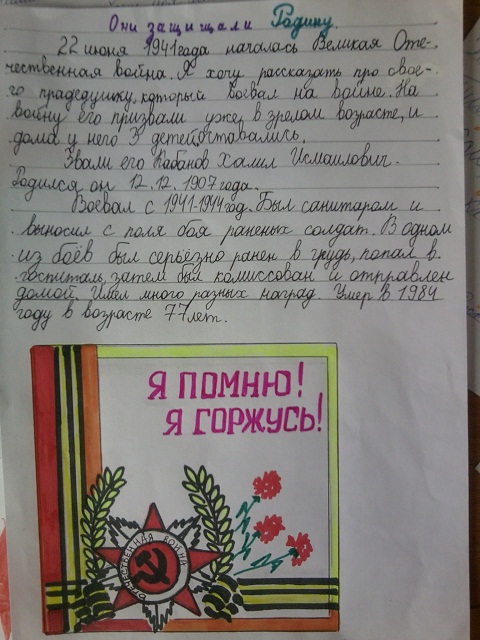 Они защищали Родину.
22 июня 1941 года началась Великая Оте-
чественная война. Я хочу рассказать про свое-
го прадедушку, который воевал на войне. На
войну его призвали уже, в зрелом возрасте, и
дома у него 3 детей оставались.
Звали его Кабанов Халил Исмаилович.
Родился он 12.12.1907 года.
Воевал с 1941-1944 год. Был санитаром и
выносил с поля боя раненых солдат. В одном
из боёв был серьёзно ранен в грудь, попал в
госпиталь, затем был комиссован и отправлен
домой. Имел много разных наград. Умер в 1984
году в возрасте 77 лет.
Я ПОМНЮ!
Я ГОРЖУСЬ!
ОТЕЧЕСТВЕННАЯ ВОЙНА